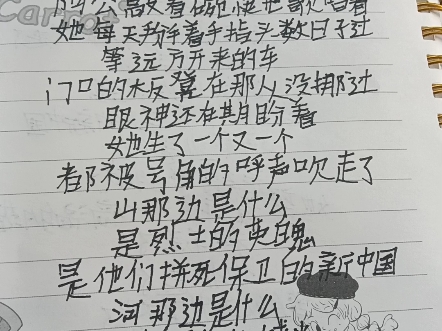 Carrots
阿公敲着碗筷把歌唱着
她每天掰着手指头数日子过
等远方开来的车
门口的板凳在那从没挪过
眼神还在期盼着
她生了一个又一个
都被号角的呼声吹走了
山那边是什么
是烈士的英魄
是他们拼死保卫的新中国
河那边是什么